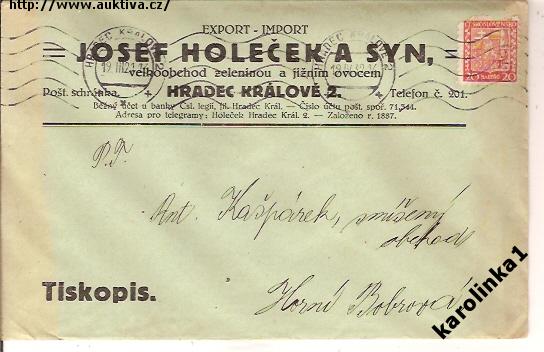 http://www.auktiva.cz/
EXPORT - IMPORT
JOSEF HOLEČEK A SYN,
velkoobchod zeleninou a jižním ovocem
Pošt. schránka. HRADEC KRÁLOVÉ 2. Telefon č. 201.
Běžný účet u banky Čsl. legií, fil. Hradec Král. — Číslo účtu pošt. spoř. 71.544.
Adresa pro telegramy: Holeček Hradec Král. 2. — Založeno r. 1887.
HRADEC KRÁLOVÉ 2
HRADEC KRÁLOVÉ 2
20 20
P.T.
Ant. Kašpárek, smíšený
obchod
Horní Bobrová
Tiskopis.
karolinka1